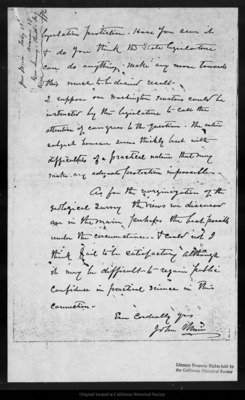 legislative protection. Have you seen it
& do you think the State legislature
can do anything, make any move towards
this much to be desired result
I suppose our Washington senators could be
instructed by the legislature to call the
attention of congress to the question. The entire
subject however seems thickly beset with
difficulties of a practical nature that may
make any adequate protection impossible.
As for the reorganization of the
Geological Survey the views we discussed
are in the main perhaps the best possible
under the circumstances & could not I
think fail to be satisfactory although
it may be difficult to regain public
confidence in practical science in this
connection.
Ever Cordially yrs
John Muir
Literary Property Rights held by
the California Historical Society
Original located at California Historical Society